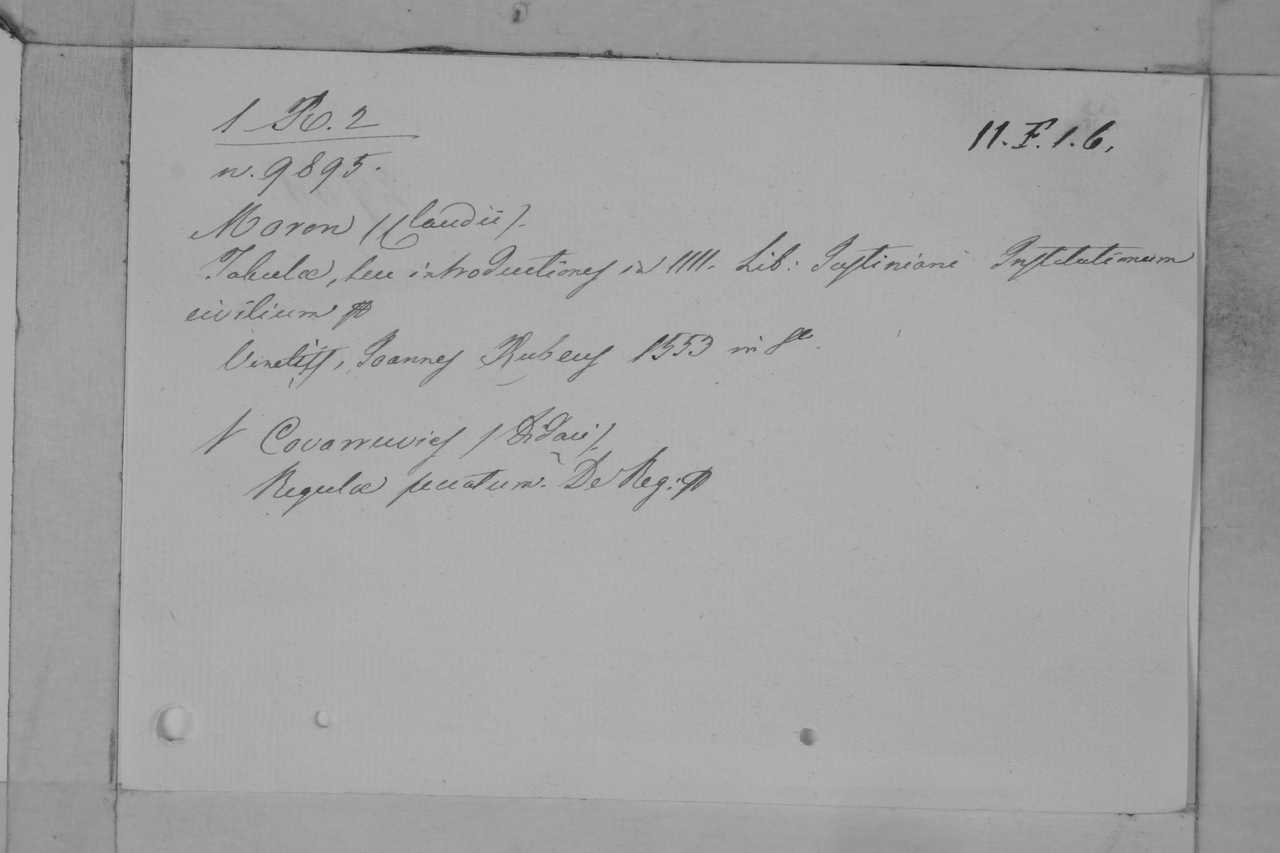 1 R. 2
11.F.1.6.
n. 9895.
Maron /Claudii/.
Tabulæ, seu introductiones in IIII. Lib: Justiniani Institutionum
civilium
Venetijs, Joannes Rubeus 1553 in 8º.
Covarruvies /Didaci/.
Regulæ peccatum. De Reg: